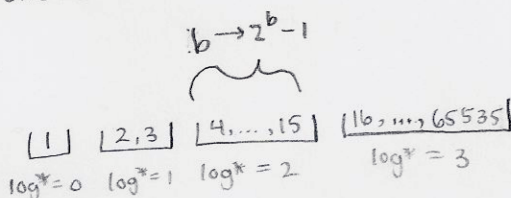 b → 2^b - 1
[1] [2, 3] [4, ..., 15] [16, ..., 65535]
log* = 0 log* = 1 log* = 2 log* = 3